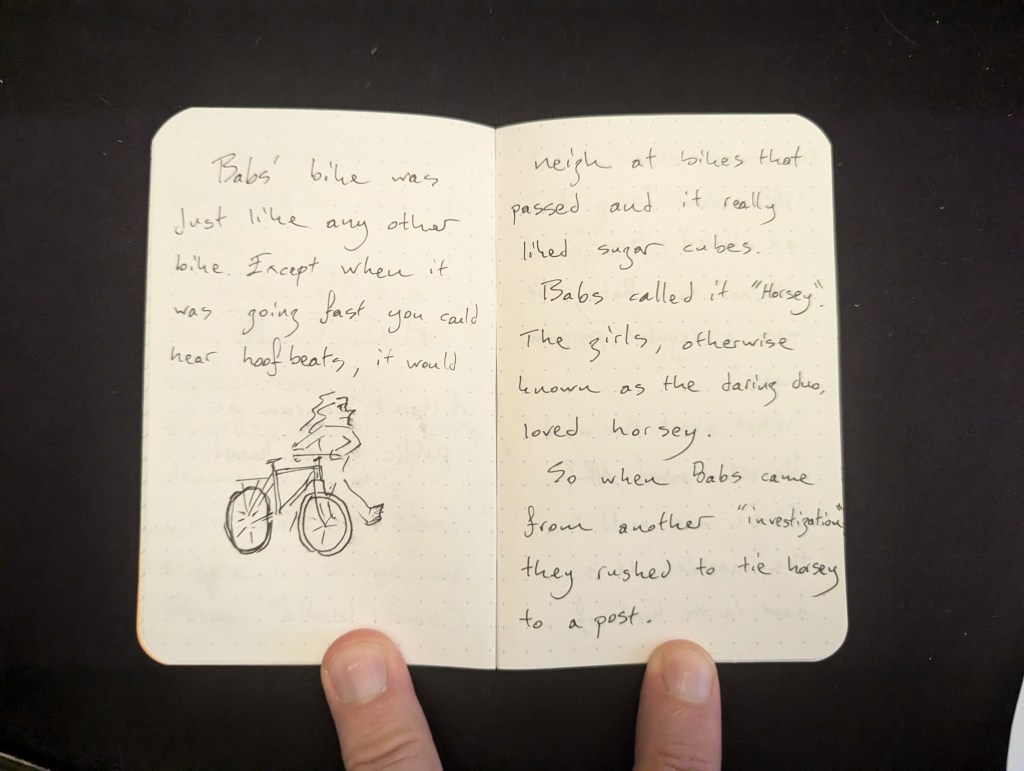 Babs' bike was
Just like any other
bike. Except when it
was going fast you could
hear hoof beats, it would
neigh at bikes that
passed and it really
liked sugar cubes.
Babs called it "Horsey".
The girls, otherwise
known as the daring duo,
loved horsey.
So when Babs came
from another "investigation"
they rushed to tie horsey
to a post.